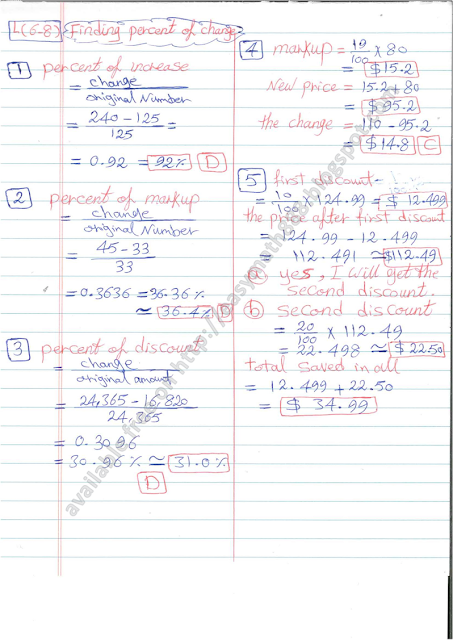 L(6-8) Finding percent of change
1 percent of increase
= change / original Number
= 240 - 125 / 125 =
= 0.92 = 92% D
2 percent of markup
= change / original Number
= 45 - 33 / 33
= 0.3636 = 36.36%
≃ 36.4% D
3 percent of discount
= change / original amount
= 24,365 - 16,820 / 24,365
= 0.3096
= 30.96% ≃ 31.0%
D
4 markup = 19/100 x 80
= $15.2
New price = 15.2 + 80
= $95.2
the change = 110 - 95.2
= $14.8 C
5 first discount
= 10/100 x 124.99 = $12.499
the price after first discount
= 124.99 - 12.499
= 112.491 ≃ $112.49
a yes, I will get the
second discount.
b second discount
= 20/100 x 112.49
= 22.498 ≃ $22.50
total saved in all
= 12.499 + 22.50
= $34.99
available free on http://easymathgcc.blogspot.com